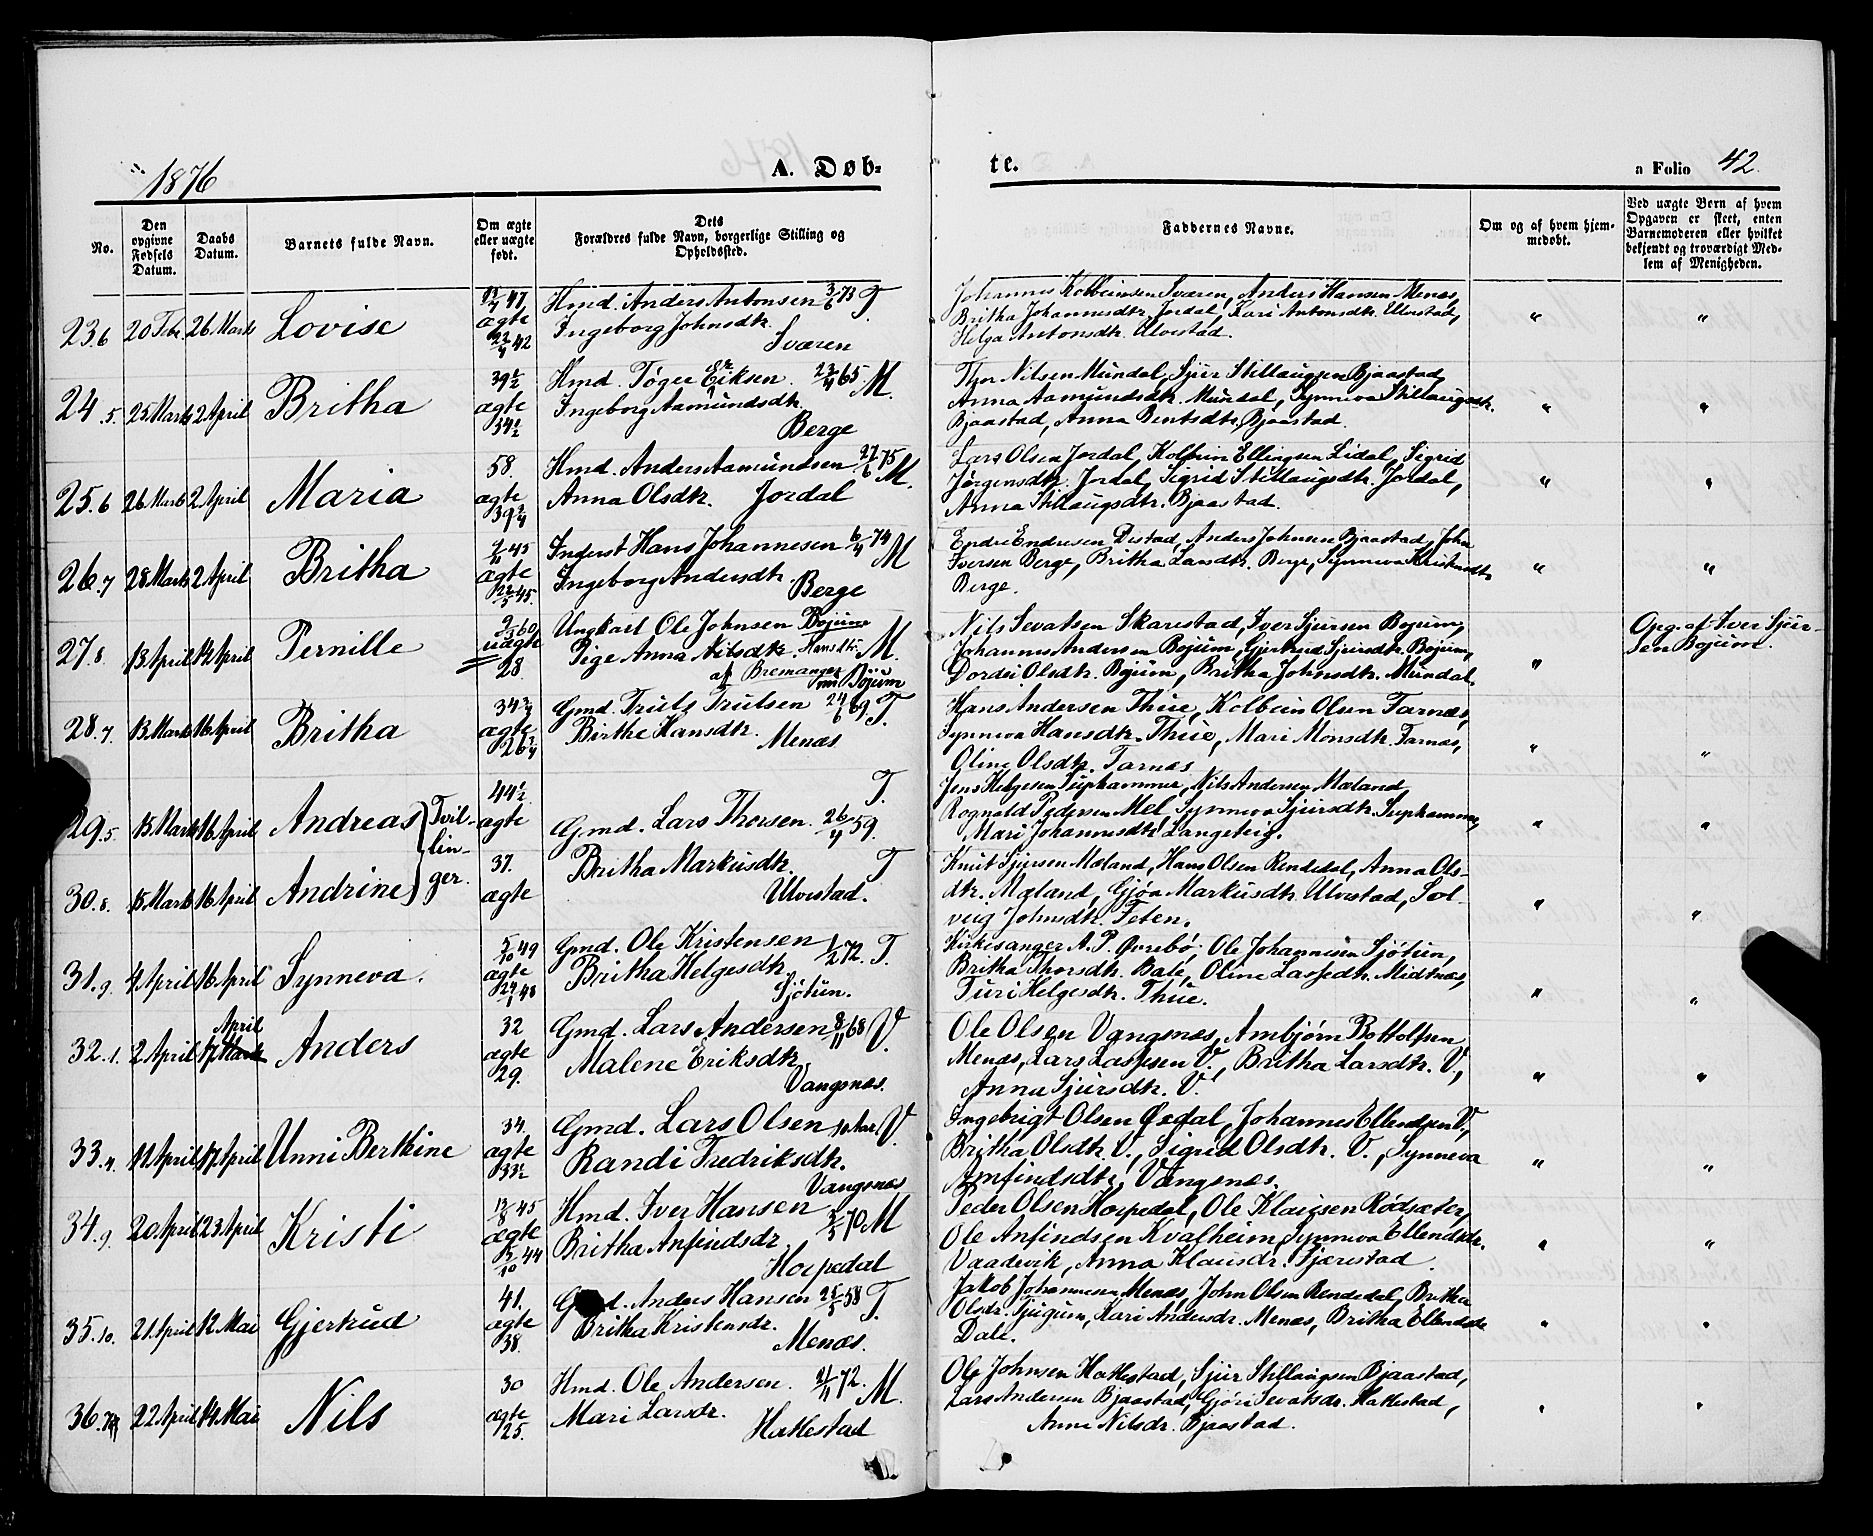 1876
A. Døb-
te.
a Folio 42.
No.
Den opgivne Fødsels Datum.
Daabs Datum.
Barnets fulde Navn.
Om ægte eller uægte født.
Dets Forældres fulde Navn, borgerlige Stilling og Opholdssted.
Faddernes Navne.
Om og af hvem hjemmedøbt.
Ved uægte Børn af hvem Opgaven er skeet, enten Barnemoderen eller hvilket bekjendt og troværdigt Medlem af Menigheden.
23.6 20 Febr. 26 Marts Lovise ægte
Hmd. Anders Antonsen 3/6 73 T
Ingeborg Johnsdtr.
Sværen
Johannes Kolbeinsen Sværen, Anders Hansen Menæs,
Britha Johannesdtr. Jordal, Kari Antonsdtr. Ulvestad,
Helga Antonsdtr. Ulvestad.
24.5. 25 Marts 2 April Britha 39 1/2 ægte 34 1/2
Hmd. Tøger Eriksen. 65. M.
Ingeborg Aamundsdtr.
Berge
Thor Nilsen Mundal, Sjur Stillaugsen Bjaastad,
Anna Aamundsdtr. Mundal, Synneva Stillaugsdtr.
Bjaastad, Anna Bentsdtr. Bjaastad.
25.6 26 Marts 2 April Maria 58. ægte
Hmd. Anders Aamundsen 27/6 75 M.
Anna Olsdtr. Jordal
Lars Olsen Jordal, Kolbein Ellingsen Lidal, Sigrid
Jørgensdtr. Jordal, Sigrid Stillaugsdtr. Jordal,
Anna Stillaugsdtr. Bjaastad.
26.7 28 Marts 2 April Britha ægte
Inderst Hans Johannesen 6/4 74 M
Ingeborg Andersdtr.
Berge
Endre Endresen Distad, Anders Johnsen Bjaastad, John
Iversen Berge, Britha Larsdtr. Berge, Synneva Kristensdtr.
Berge.
27.8. 13 April 14 April Pernille uægte 28.
Ungkarl Ole Johnsen Bøjum
Pige Anna Nilsdtr. Hansdtr. M.
af Bremanger
Bøjum
Nils Sevatsen Skarestad, Iver Sjursen Bøjum,
Johannes Andersen Bøjum, Gjertrud Sjursdtr. Bøjum,
Dordei Olsdtr. Bøjum, Britha Johnsdtr. Mundal.
Opg. af Iver Sjur-
sen Bøjum.
28.7. 13 Marts 16 April Britha 34 3/4 ægte 26 3/4
Gmd. Truls Trulsen 24/6 69 T
Birthe Hansdtr.
Menæs
Hans Andersen Thue, Kolbein Olsen Farnæs,
Synneva Hansdtr. Thue, Mari Monsdtr. Farnæs,
Oline Olsdtr. Farnæs
29.5. 15 Marts 16 April Andreas Tvil- 44 1/2 ægte T.
Gmd. Lars Thorsen. 26/4 59.
Jens Helgesen Suphammer, Nils Andersen Mæland,
Rognald Pedersen Mel, Synneva Sjursdtr. Suphammer,
Mari Johannesdtr. Langeteig.
lin-
30.8. 15 Marts 16 April Andrine ger. 37. ægte
Britha Markusdtr. T
Ulvestad.
Knut Sjursen Mæland, Hans Olsen Rendedal, Anna Ols-
dtr. Mæland, Gjøa Markusdtr. Ulvestad, Sol-
veig Johnsdtr. Feten.
31.9. 4 April 16 April Synneva. 5/10 49 ægte
Gmd. Ole Kristensen 1/2 72. T.
Britha Helgesdtr.
Sjøtun.
Kirkesanger A. P. Øvrebø, Ole Johannesen Sjøtun,
Britha Thorsdtr. Bale, Oline Lassedtr. Midtnæs,
Turi Helgesdtr. Thue.
32.1. 2 April April 17 Marts Anders 32 ægte 29.
Gmd. Lars Andersen 8/11 68 V
Malene Eriksdtr.
Vangsnæs.
Ole Olsen Vangsnæs, Ambjørn Bottolfsen
Menæs, Lars Lassesen V., Britha Larsdtr. V.,
Anna Sjursdtr. V.
33.4. 11 April 17 April Unni Berthine 34. ægte 33 1/2
Gmd. Lars Olsen 10 Aar. V.
Randi Fredriksdtr.
Vangsnæs
Ingebrigt Olsen Øedal, Johannes Ellendsen V.,
Britha Olsdtr. V., Sigrid Olsdtr. V., Synneva
Anfindsdtr. Vangsnæs.
34.9. 20 April 23 April Kristi 12/8 45 ægte
Hmd. Iver Hansen 70 M
Britha Anfindsdr.
Horpedal
Peder Olsen Horpedal, Ole Klausen Rødsæter,
Ole Anfindsen Kvalheim, Synneva Ellendsdr.
Vaadevik, Anna Klausdr. Tjærestad.
35.10. 21 April 12 Mai Gjertrud 41. ægte 38.
Anders Hansen 25/5 58 T.
Britha Kristensdr.
Menæs.
Jakob Johannesen Menæs, John Olsen Rendedal, Britha
Olsdr. Tjugum, Kari Andersdr. Menæs, Britha Ellendsdr.
Dale.
36. 22 April 14 Mai Nils 30 ægte 25.
Hmd. Ole Andersen. 72. M.
Mari Larsdr.
Hatlestad
Ole Johnsen Hatlestad, Sjur Stillaugsen Bjaastad,
Lars Andersen Bjaastad, Gjøri Sevatsdr. Hatlestad,
Anna Nilsdr. Bjaastad.